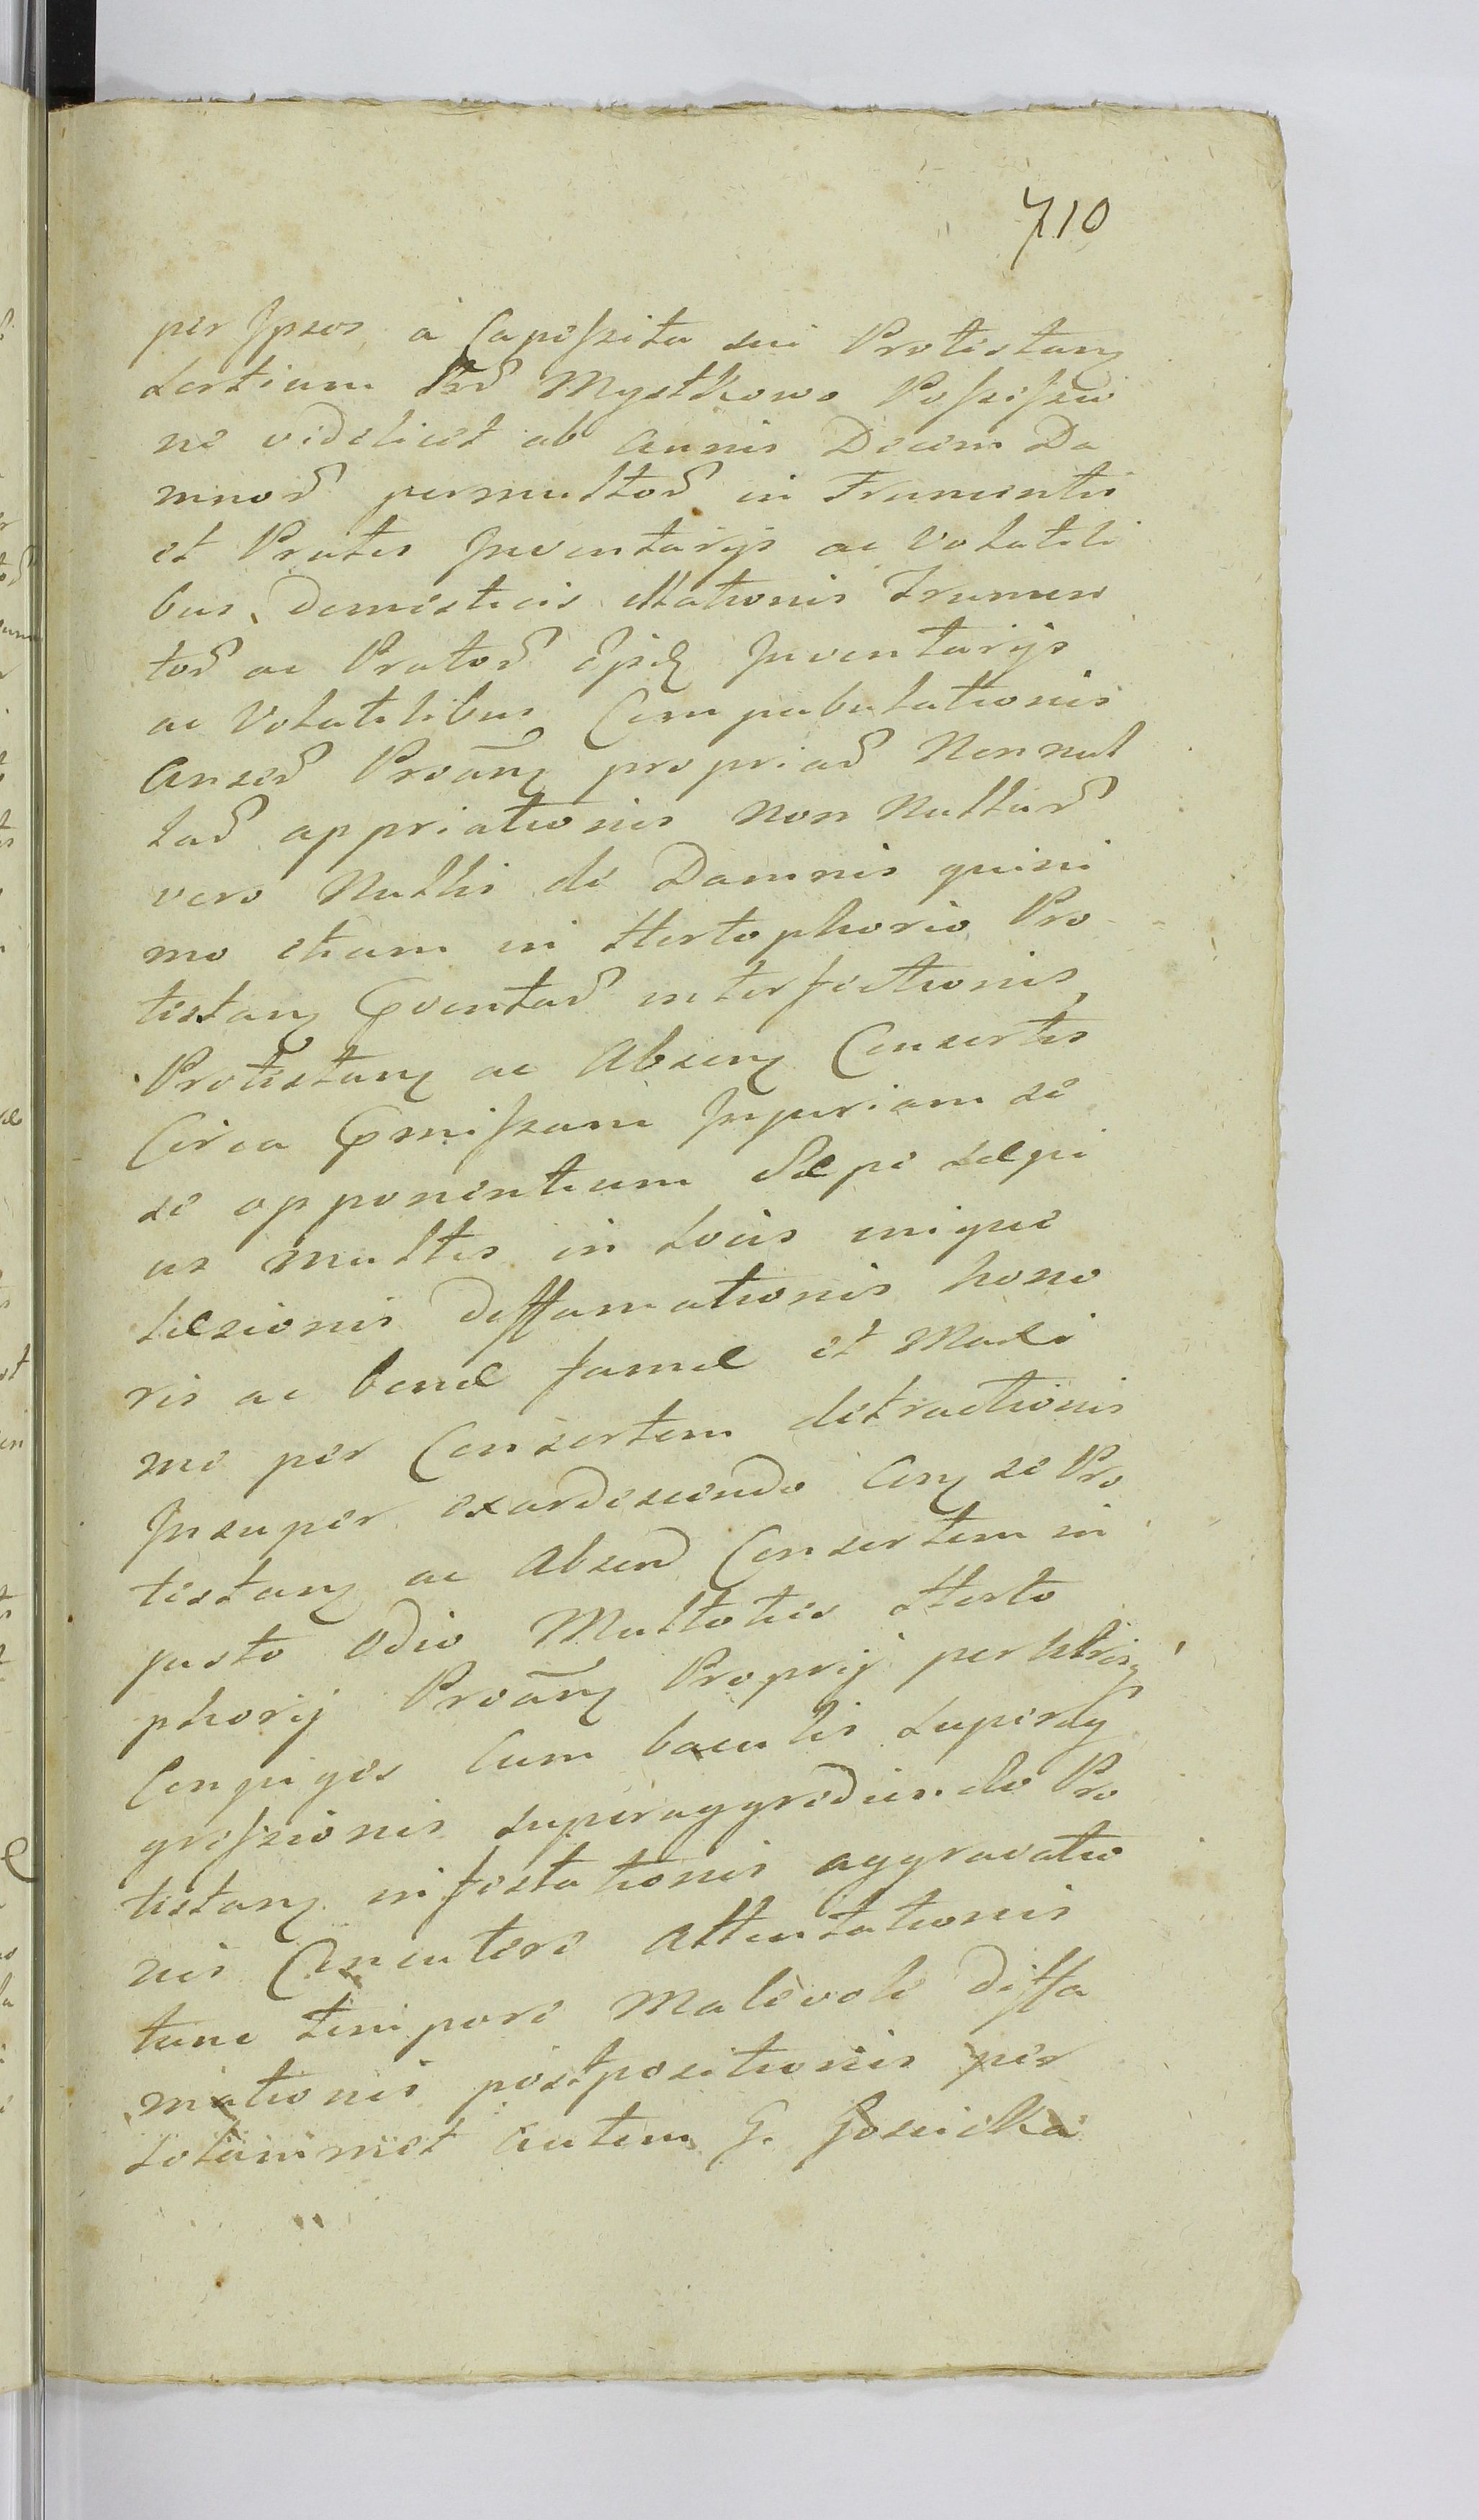 710
per Ipsos á Capeſsita sui Protestanꝫ
Sortium Mystkowo Poſseſsio
ne videlicet ab annis Decem Da
mnoꝝ permultoꝝ in Frumentis
et Pratis Inventarijs ac Volatili
bus Domesticis illationis Frumen
toꝝ ac Pratoꝝ Inventarijs
ac Volatilibus Compabulationis
Anseꝝ propriaꝝ Nonnul
laꝝ appriationis Non Nullaꝝ
vero Nullis de Damnis quini
mo etiam in Hortophorio Pro
testanꝫ interfectionis
Protestanꝫ ac Absenꝫ Consortis
Circa Injuriam se
se opponentium Sæpe sæpi
us multis in Locis inique
Læsionis Deffamationis hono
ris ac bonæ famæ et Maxi
me per Consortem detractionis
Insuper exardescendo Conꝫ se Pro
testanꝫ ac Absenꝫ Consortem in
justo Odio Multoties Horto
phorij Proanꝫ Proprij per
Conjuges Cum baculis superag
greſsionis superaggrediendo Pro
testanꝫ infestationis aggravatio
nis Concutere Attentationis
tunc tempore Malevole Diffa
mationis postpositionis per
solummet autem G. Gosicka